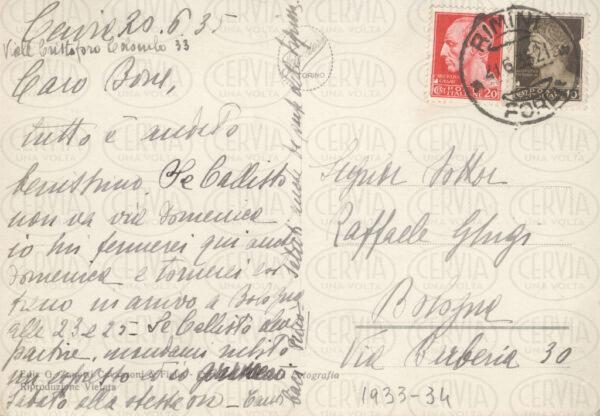 Cervia 20.6.35
Viale Cristoforo Colombo 33
Caro Bone,
tutto è andato
benissimo. Se Callisto
non va via domenica
io mi fermerei qui anche
domenica e tornerei col
treno in arrivo a Bologna
alle 23 e 25 - Se Callisto deve
partire, mandami subito
un espresso ed io
sabato alla stessa ora -
TORINO
Riproduzione Vietata
Fotografia
RIMINI
FORLÌ
20
Signor Dottor
Raffaele Ghigi
Bologna
Via Barberia 30
1933-34
CERVIA
UNA VOLTA